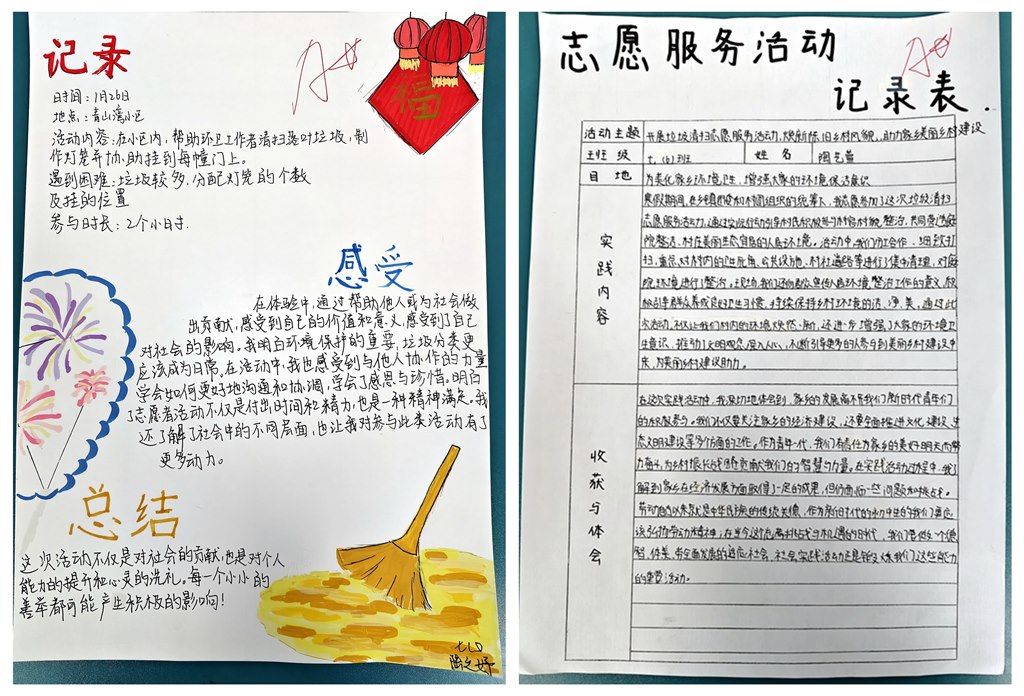 记录
A+
福
时间：1月26日
地点：青山湾小区
活动内容：在小区内，帮助环卫工作者清扫落叶垃圾，制
作灯笼并协助挂到每幢门上。
遇到困难：垃圾较多，分配灯笼的个数
及挂的位置
参与时长：2个小时.
感受
在体验中，通过帮助他人或为社会做
出贡献，感受到自己的价值和意义，感受到了自己
对社会的影响。我明白环境保护的重要，垃圾分类更
应该成为日常。在活动中，我也感受到与他人协作的力量
学会如何更好地沟通和协调，学会了感恩与珍惜。明白
了志愿者活动不仅是付出时间和精力，也是一种精神满足。我
还了解了社会中的不同层面，也让我对参与此类活动有了
更多动力。
总结
这次活动不仅是对社会的贡献，也是对个人
能力的提升和心灵的洗礼。每一个小小的
善举都可能产生积极的影响！
志愿服务活动
A+
记录表.
活动主题 开展垃圾清扫志愿服务活动，焕新陈旧乡村风貌，助力家乡美丽乡村建设
班级 七.(6)班 姓名
目地 为美化家乡环境卫生，增强大家的环境保洁意识
实践内容
寒假期间，在乡镇团委和村团组织的统筹下，我志愿参加了这次垃圾清扫
志愿服务活动，通过实际行动引导村民积极参与村容村貌整治，共同营造庭
院整洁、村庄美丽生态宜居的人居环境。活动中，我们分工合作、细致打
扫，重点对村内的卫生死角、公共设施、村社道路等进行了集中清理，对庭
院环境进行了整治。
活动，不仅让我们村内的环境焕然一新，还进一步增强了大家的环境卫
生意识，推动了文明观念深入人心，不断引导更多的人参与到美丽乡村建设中
来，为美丽乡村建设助力。
收获与体会
在这次实践活动中，我深切地体会到，家乡的发展离不开我们新时代青年们
的积极参与。我们不仅要关注家乡的经济建设，还要全面推进文化建设、生
态文明建设等多方面的工作。作为青年一代，我们有责任为家乡的美好明天而努
力奋斗，为乡村振兴战略贡献我们的智慧与力量。在实践活动过程中，我了
解到家乡在经济发展方面取得了一定的成果，但仍面临一些问题和挑战。